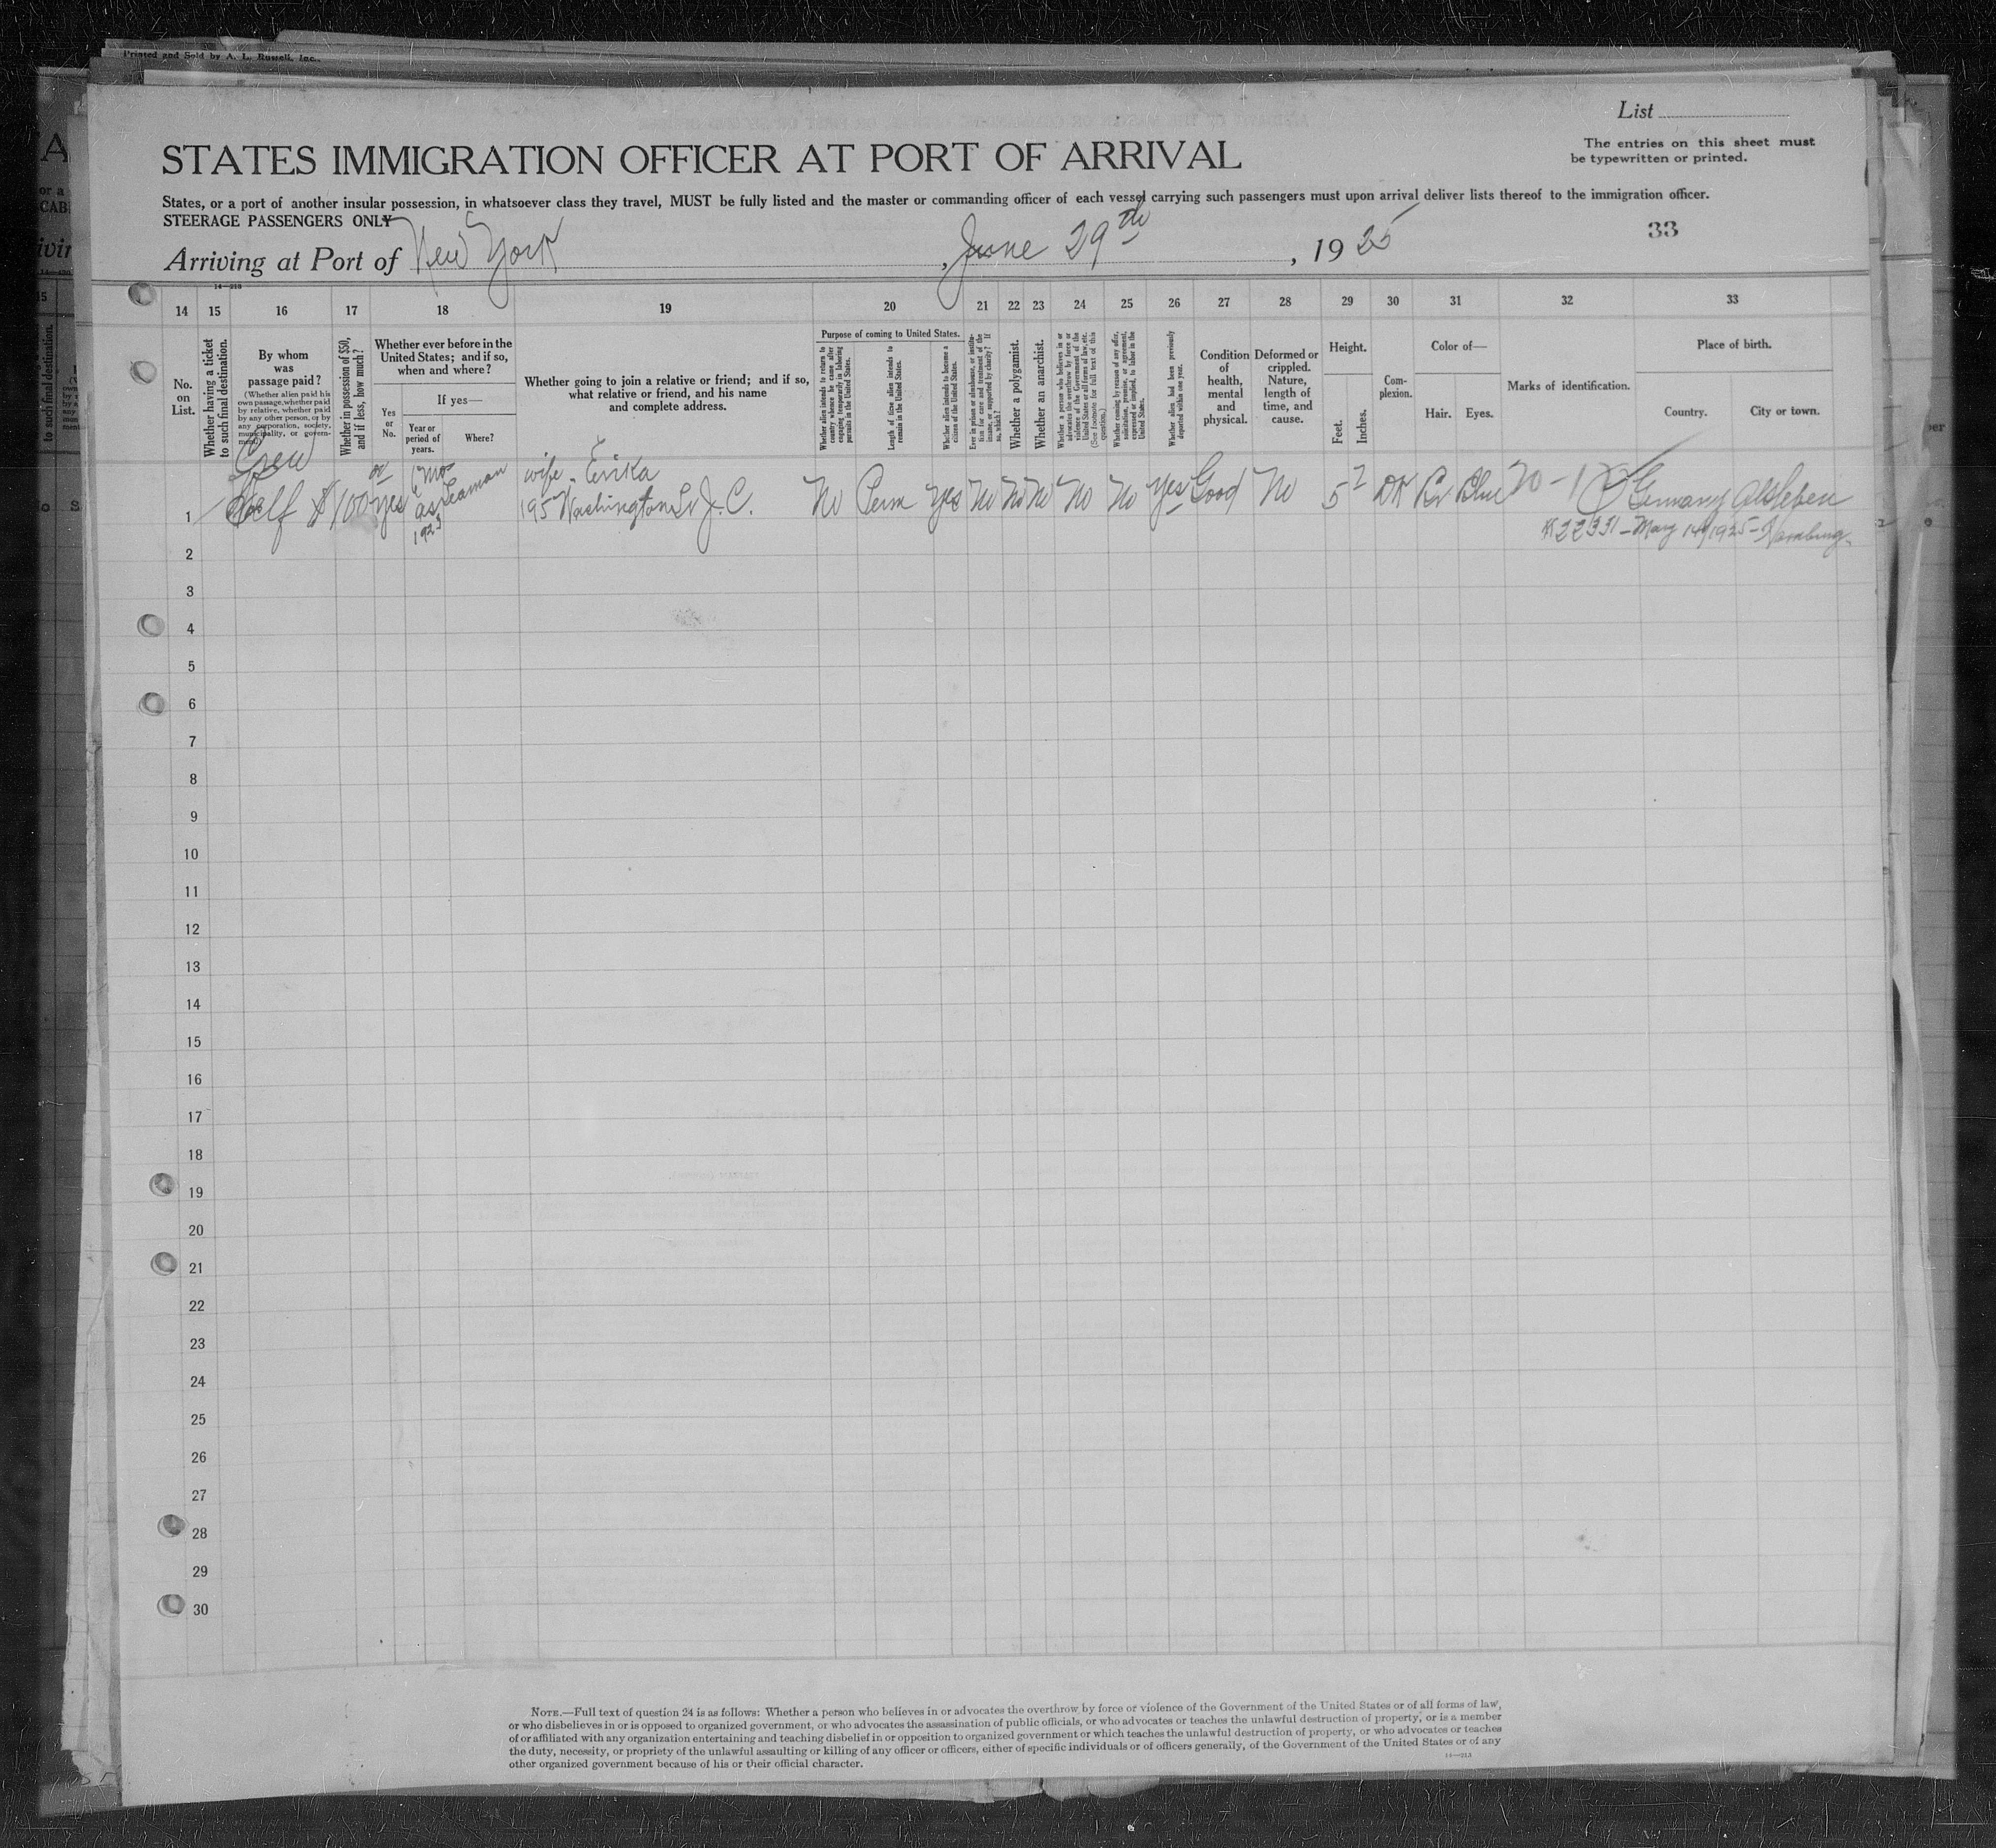 Printed and Sold by A. L. Russell, Inc.
List
The entries on this sheet must
be typewritten or printed.
STATES IMMIGRATION OFFICER AT PORT OF ARRIVAL
States, or a port of another insular possession, in whatsoever class they travel, MUST be fully listed and the master or commanding officer of each vessel carrying such passengers must upon arrival deliver lists thereof to the immigration officer.
STEERAGE PASSENGERS ONLY
33
Arriving at Port of New York, June 29th, 1925
14—213
14 15 16 17 18 19 20 21 22 23 24 25 26 27 28 29 30 31 32 33
No. on List.
Whether having a ticket to such final destination.
By whom was passage paid?
(Whether alien paid his own passage, whether paid by relative, whether paid by any other person, or by any corporation, society, municipality, or government.)
Whether in possession of $50, and if less, how much?
Whether ever before in the United States; and if so, when and where?
Yes or No.
If yes—
Year or period of years.
Where?
Whether going to join a relative or friend; and if so, what relative or friend, and his name and complete address.
Purpose of coming to United States.
Whether alien intends to return to country whence he came after engaging temporarily in laboring pursuits in the United States.
Length of time alien intends to remain in the United States.
Whether alien intends to become a citizen of the United States.
Ever in prison or almshouse, or institution for care and treatment of the insane, or supported by charity? If so, which?
Whether a polygamist.
Whether an anarchist.
Whether a person who believes in or advocates the overthrow by force or violence of the Government of the United States or all forms of law, etc. (See footnote for full text of this question.)
Whether coming by reason of any offer, solicitation, promise, or agreement, expressed or implied, to labor in the United States.
Whether alien had been previously deported within one year.
Condition of health, mental and physical.
Deformed or crippled. Nature, length of time, and cause.
Height.
Feet.
Inches.
Complexion.
Color of—
Hair.
Eyes.
Marks of identification.
Place of birth.
Country.
City or town.
6 mo wife Erika
1 Self $100 yes as Seaman 195 Washington St J.C. No Perm yes No No No No No Yes Good No 5 7 DK Br Blue Germany Alsleben
1923
22331 – May 14/1925 – Hamburg
2
3
4
5
6
7
8
9
10
11
12
13
14
15
16
17
18
19
20
21
22
23
24
25
26
27
28
29
30
NOTE.—Full text of question 24 is as follows: Whether a person who believes in or advocates the overthrow by force or violence of the Government of the United States or of all forms of law,
or who disbelieves in or is opposed to organized government, or who advocates the assassination of public officials, or who advocates or teaches the unlawful destruction of property, or is a member
of or affiliated with any organization entertaining and teaching disbelief in or opposition to organized government or which teaches the unlawful destruction of property, or who advocates or teaches
the duty, necessity, or propriety of the unlawful assaulting or killing of any officer or officers, either of specific individuals or of officers generally, of the Government of the United States or of any
other organized government because of his or their official character.
14—213